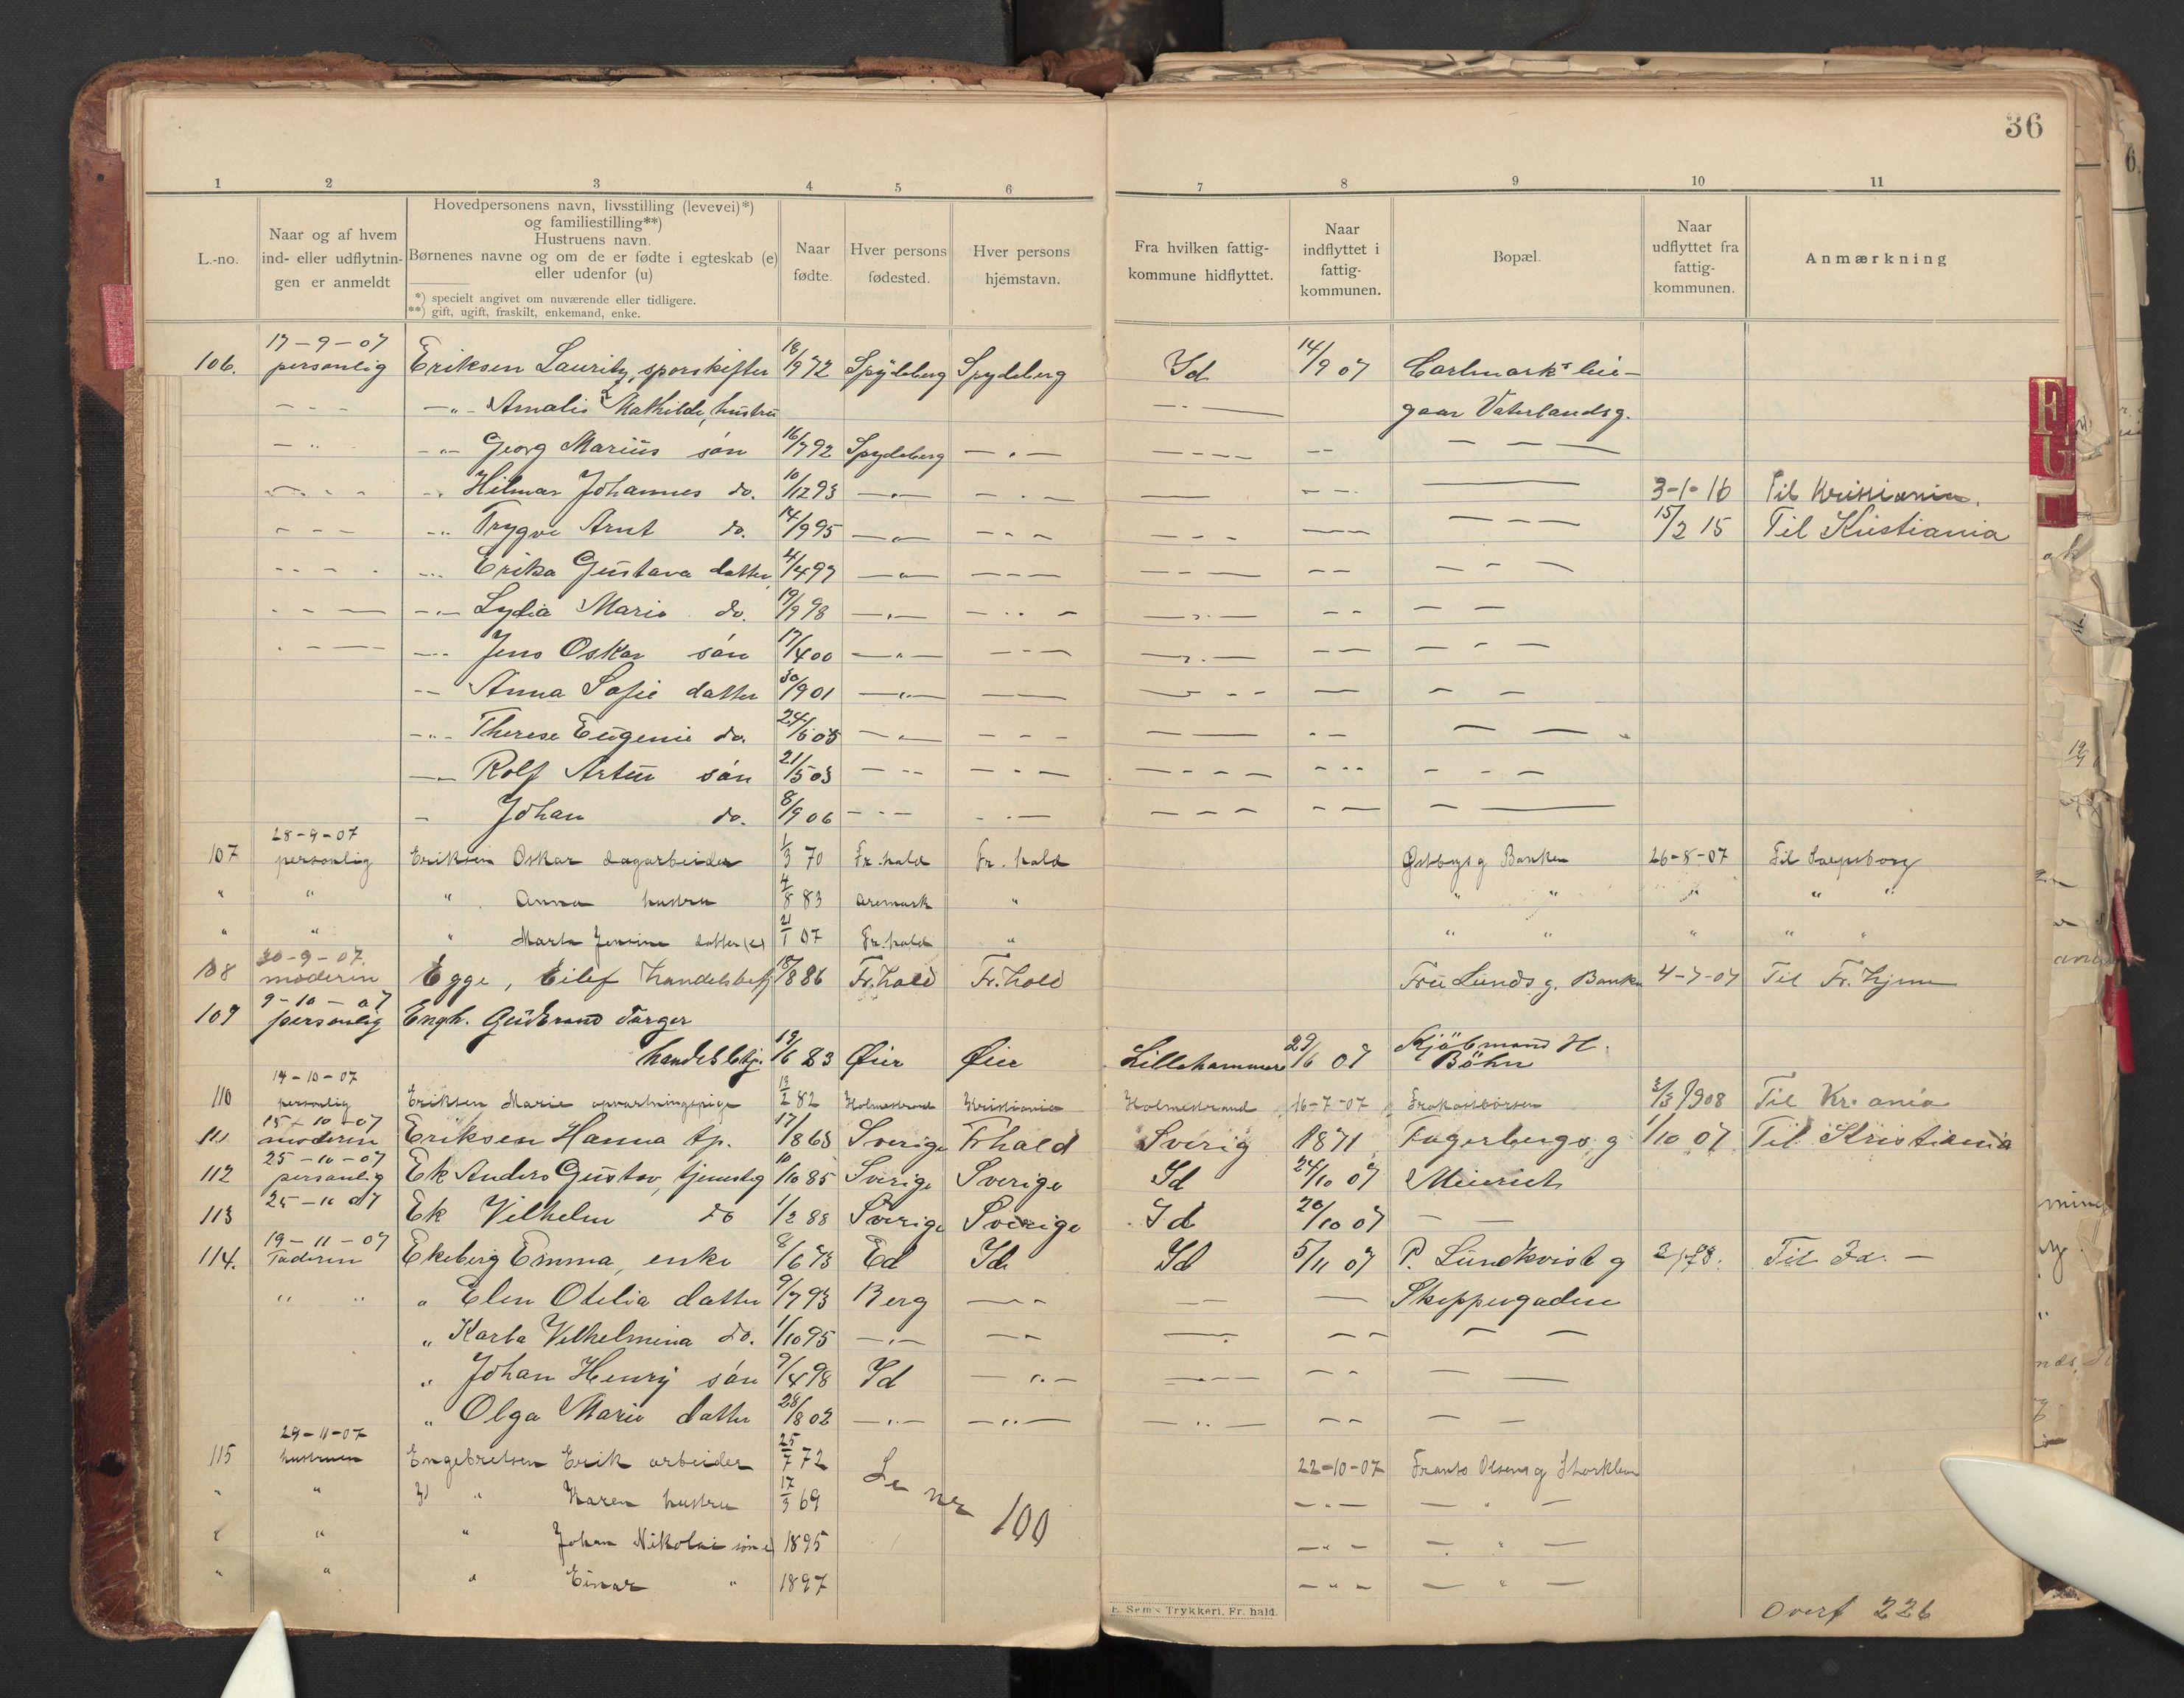 36
1 2 3 4 5 6 7 8 9 10 11
L.-no.
Naar og af hvem ind- eller udflytnin-gen er anmeldt
Hovedpersonens navn, livsstilling (levevei)*)
og familiestilling**)
Hustruens navn.
Børnenes navne og om de er fødte i egteskab (e)
eller udenfor (u)
*) specielt angivet om nuværende eller tidligere.
**) gift, ugift, fraskilt, enkemand, enke.
Naar fødte.
Hver persons fødested.
Hver persons hjemstavn.
Fra hvilken fattig-kommune hidflyttet.
Naar indflyttet i fattig-kommunen.
Bopæl.
Naar udflyttet fra fattig-kommunen.
Anmærkning
17-9-07
106. personlig Eriksen Lauritz, sporskifter 18/9 72 Spydeberg Spydeberg Id 14/9 07 Carlmarks leie-
- - - -„- Amalie Mathilde, hustru - - gaar Vaterlandsg.
- - -„- Georg Marius søn 16/7 92 Spydeberg - - - - - - - - -
- - - -„- Hilmar Johannes do. 10/12 93 - - - - - - - 3-1-16 Til Kristiania.
- - - -„- Trygve Arnt do. 14/9 95 - - - - - - - - 15/2 15 Til Kristiania
- - - -„- Erika Gustava datter 4/4 97 - - - - - - - -
- - - -„- Lydia Marie do. 19/9 98 - - - - - - - -
- - - -„- Jens Oskar søn 17/4 00 - - - - - - - -
-„- Anna Sofie datter 30/9 01 - - - - - - - -
-„- Therese Eugenie do. 24/6 05 - - - - - - - -
-„- Rolf Artur søn 21/5 03 - - - - - - - -
- Johan do. 8/9 06 - - - - - - - -
28-9-07
107 personlig Eriksen Oskar dagarbeider 1/3 70 Fr.hald Fr.hald Østbys g Banken 26-8-07 Til Sarpsborg
" " " Anna hustru 4/8 83 Aremark " " " " " "
" " " Marta Jensine datter (e) 21/1 07 Fr.hald " " " " " "
30-9-07.
108 moderen Egge, Eilef handelsbetj 18/8 86 Fr.hald Fr.hald Fru Lunds g. Banken 4-7-07 Til Fr. hjem
9-10-07
109 personlig Engh. Gudbrand Farger
handelsbtj. 19/6 83 Øier Øier Lillehammer 29/6 07 Kjøbmand H. Böhn
14-10-07
110 personlig Eriksen Marie opvartningspige 13/2 82 Holmestrand Kristiania Holmestrand 16-7-07 Frokostbørsen 3/3 1908 Til Kr.ania
15-10-07
111 moderen Eriksen Hanna tp. 17/1 865 Sverige Frhald Sverig 1871 Fagerbergs g 1/10 07 Til Kristiania
25-10-07
112 personlig Ek Anders Gustav, tjenestg 10/10 85 Sverige Sverige Id 24/10 07 Meieriet
25-10 07
113 Ek Vilhelm do 1/2 88 Sverige Sverige Id 20/10 07 - -
19-11-07
114. Faderen Ekeberg Emma, enke 8/6 73 Ed Id Id 5/11 07 P. Lundkvist g Til Id. -
" " " Elen Otelia datter 9/7 93 Berg - - - - Skippergaden
" Karla Vilhelmina do. 1/10 95 - - - - - - -
" Johan Henry søn 9/4 98 Id - - - - - -
" Olga Marie datter 28/8 02 - - - - - - -
29-11-07
115 hustruen Engebretsen Erik arbeider 25/7 72 22-10-07 Frants Olsens g Storkleven
" " " Karen hustru 17/3 69 Se nr 100 - - - - " -
" " " Johan Nikolai søn e) 1895 - - - - " -
" " " Einar " 1897 - - - - " -
E. Sem's Trykkeri. Fr.hald.
Overf 226